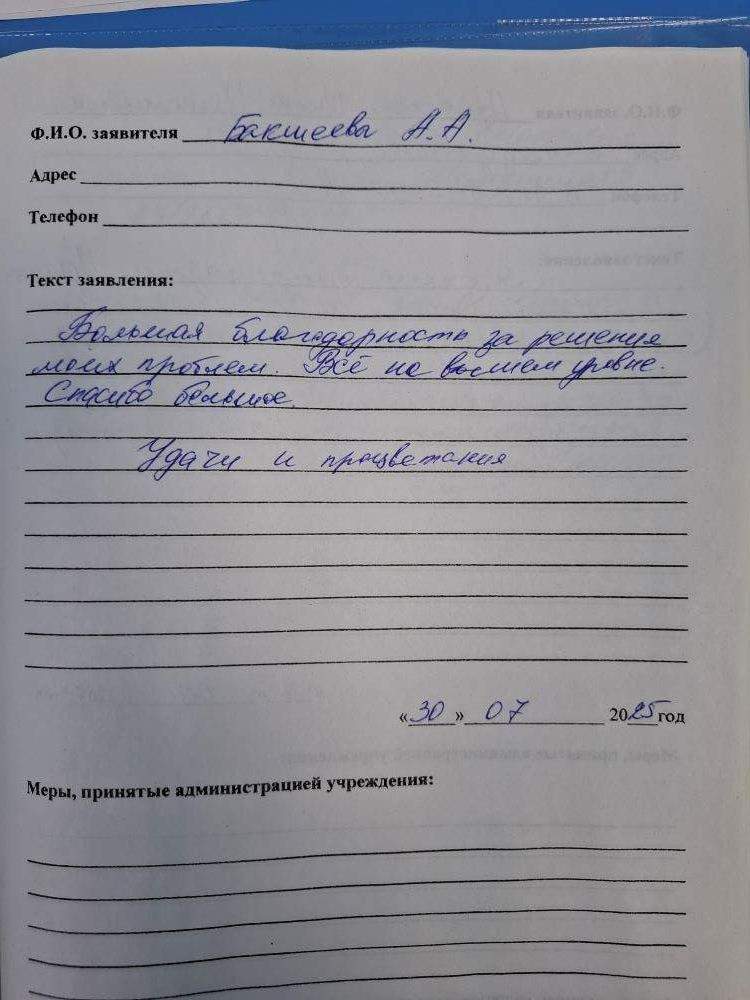 Ф.И.О. заявителя Бакшеевы А.А.
Адрес
Телефон
Текст заявления:
Большая благодарность за решения
моих проблем. Всё на высшем уровне.
Спасибо большое.
Удачи и процветания
«30» 07 2025 год
Меры, принятые администрацией учреждения: